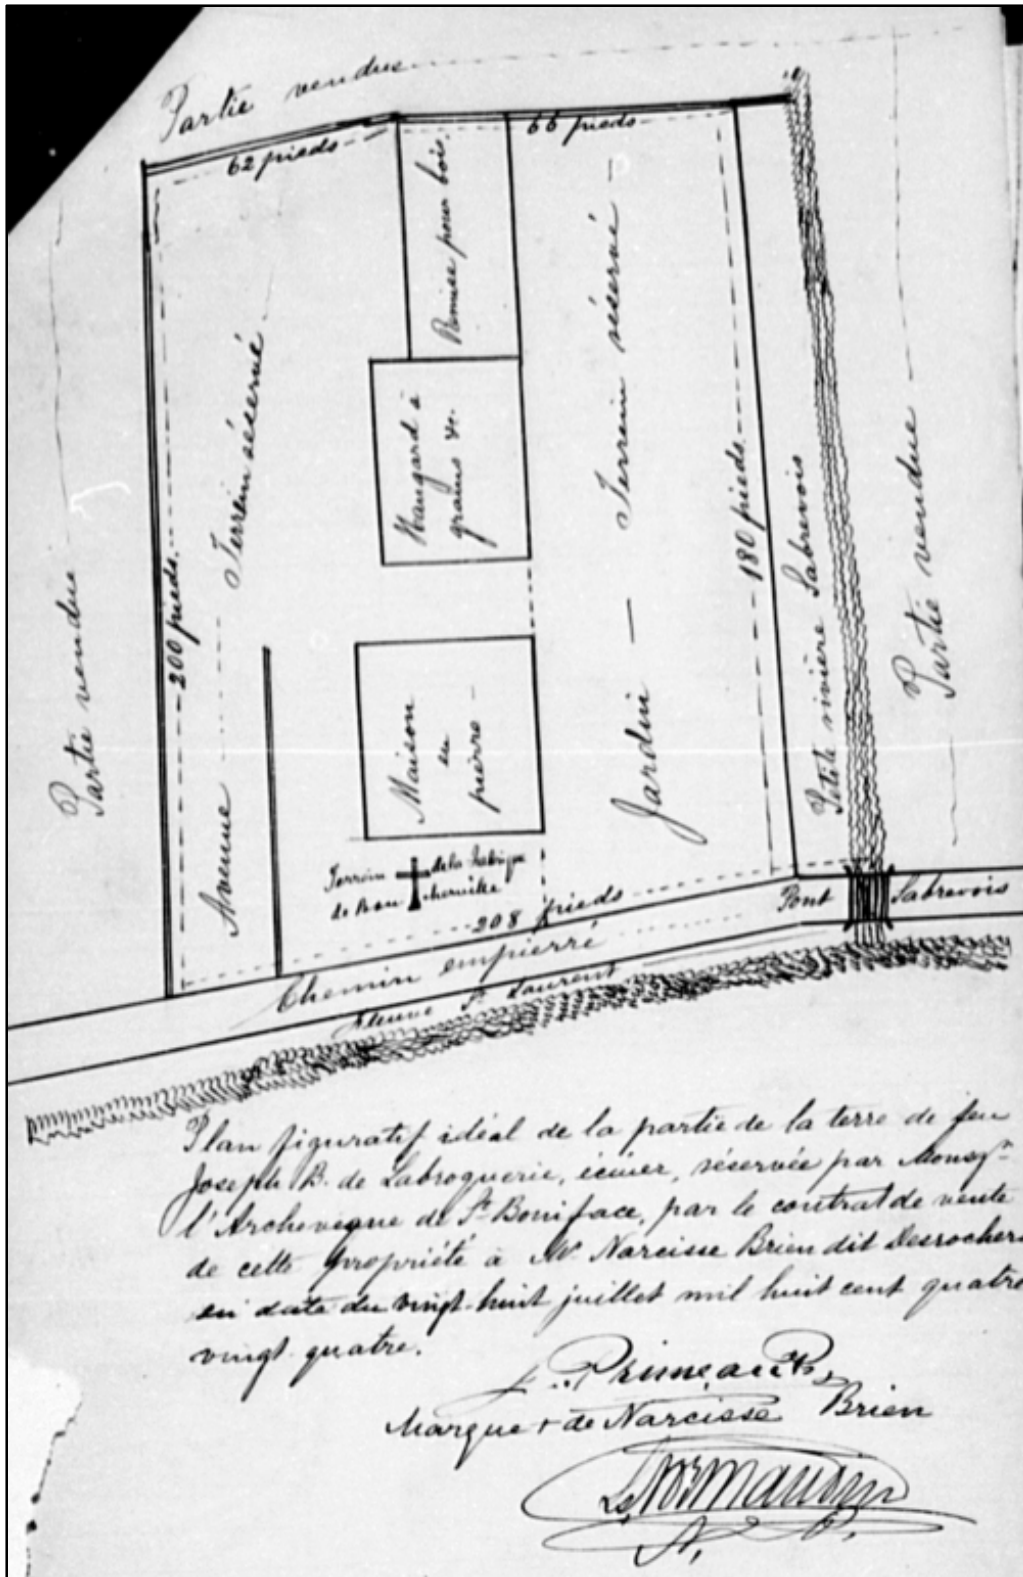 Partie vendue
62 pieds
66 pieds
Remise pour bois
Terrain réservé
Hangard à
grains &c.
Terrain réservé
180 pieds
200 pieds
Partie vendue
Avenue
Maison
en
pierre
Jardin
Petite rivière Sabrevois
Partie vendue
Terrain de la Fabrique
de Boucherville
208 pieds
Pont Sabrevois
Chemin empierré
Fleuve St Laurent
Plan figuratif idéal de la partie de la terre de feu
Joseph B. de Labroquerie, écuier, réservée par Monsgr
l'Archevêque de St Boniface, par le contrat de vente
de cette propriété à Mr Narcisse Brien dit Desrochers
en date du vingt-huit juillet mil huit cent quatre
vingt quatre.
J. Primeau Ptr
Marque + de Narcisse Brien
Normandin
N. P.